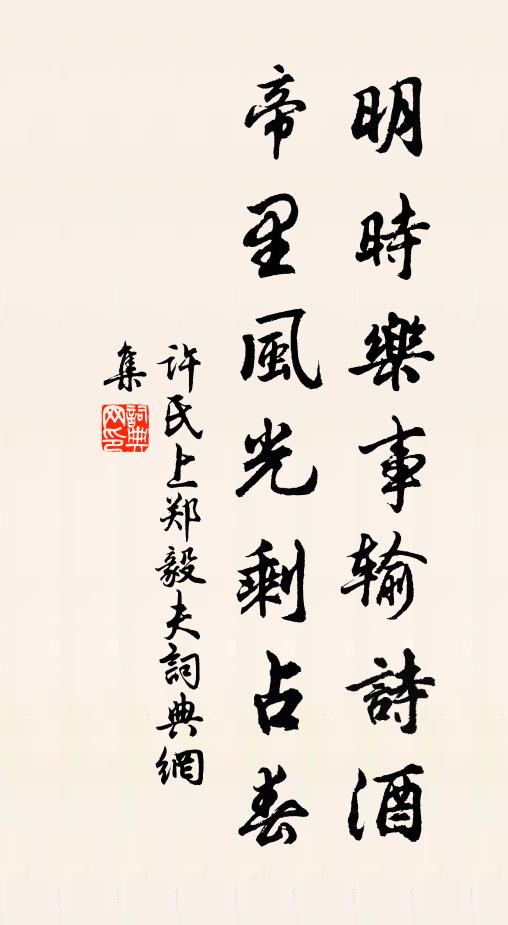 明時樂事输詩酒
帝里風光剩占春
许氏上郑毅夫詞典網
集
詞典網印